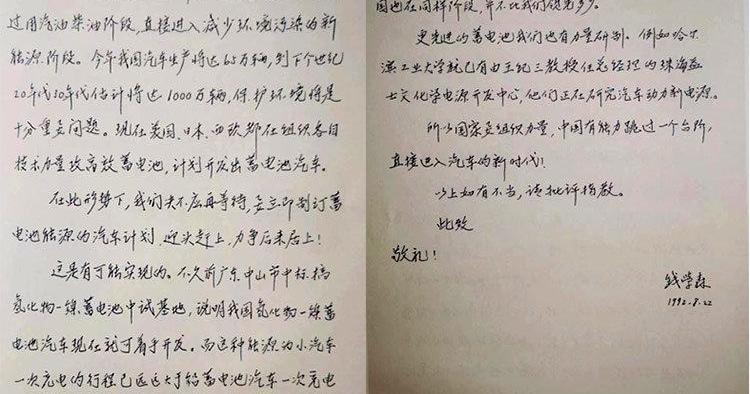 过用汽油柴油阶段，直接进入减少环境污染的新
能源阶段。今年我国汽车生产将达65万辆，到下个世纪
20年代30年代估计将达1000万辆，保护环境将是
十分重要问题。现在美国、日本、西欧都在组织各自
技术力量攻高效蓄电池，计划开发出蓄电池汽车。
在此形势下，我们决不应再等待，要立即制订蓄
电池能源的汽车计划，迎头赶上，力争后来居上！
这是有可能实现的。不久前广东中山市中标搞
氢化物—镍蓄电池中试基地，说明我国氢化物—镍蓄
电池汽车现在就可着手开发。而这种能源为小汽车
一次充电的行程已远远大于铅蓄电池汽车一次充电
国也在同样阶段，并不比我们领先多少。
更先进的蓄电池我们也有力量研制。例如哈尔
滨工业大学就已有由王纪三教授任总经理的珠海益
士文化学电源开发中心，他们正在研究汽车动力新电源。
所以国家要组织力量，中国有能力跳过一个台阶，
直接进入汽车的新时代！
以上如有不当，请批评指教。
此致
敬礼！
钱学森
1992.8.22